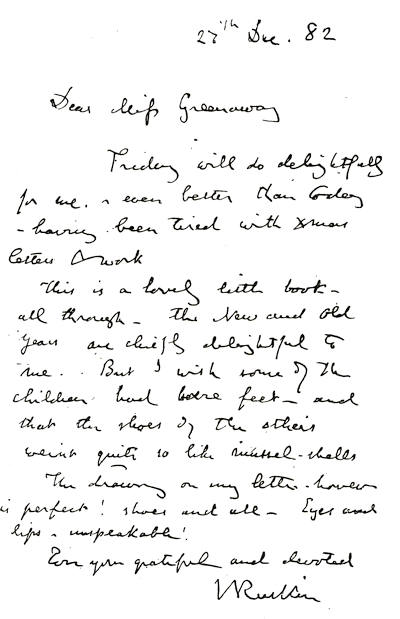 27th Dec. 82
Dear Miss Greenaway
Friday will do delightfully
for me. & even better than today
- having been tired with Xmas
letters & work
This is a lovely little book -
all through - the New and Old
Years are chiefly delightful to
me. But I wish some of the
children had bare feet - and
that the shoes of the others
weren't quite so like mussel-shells
The drawing on my letter - however
is perfect! shoes and all - Eyes and
lips - unspeakable!
Ever your grateful and devoted
JRuskin